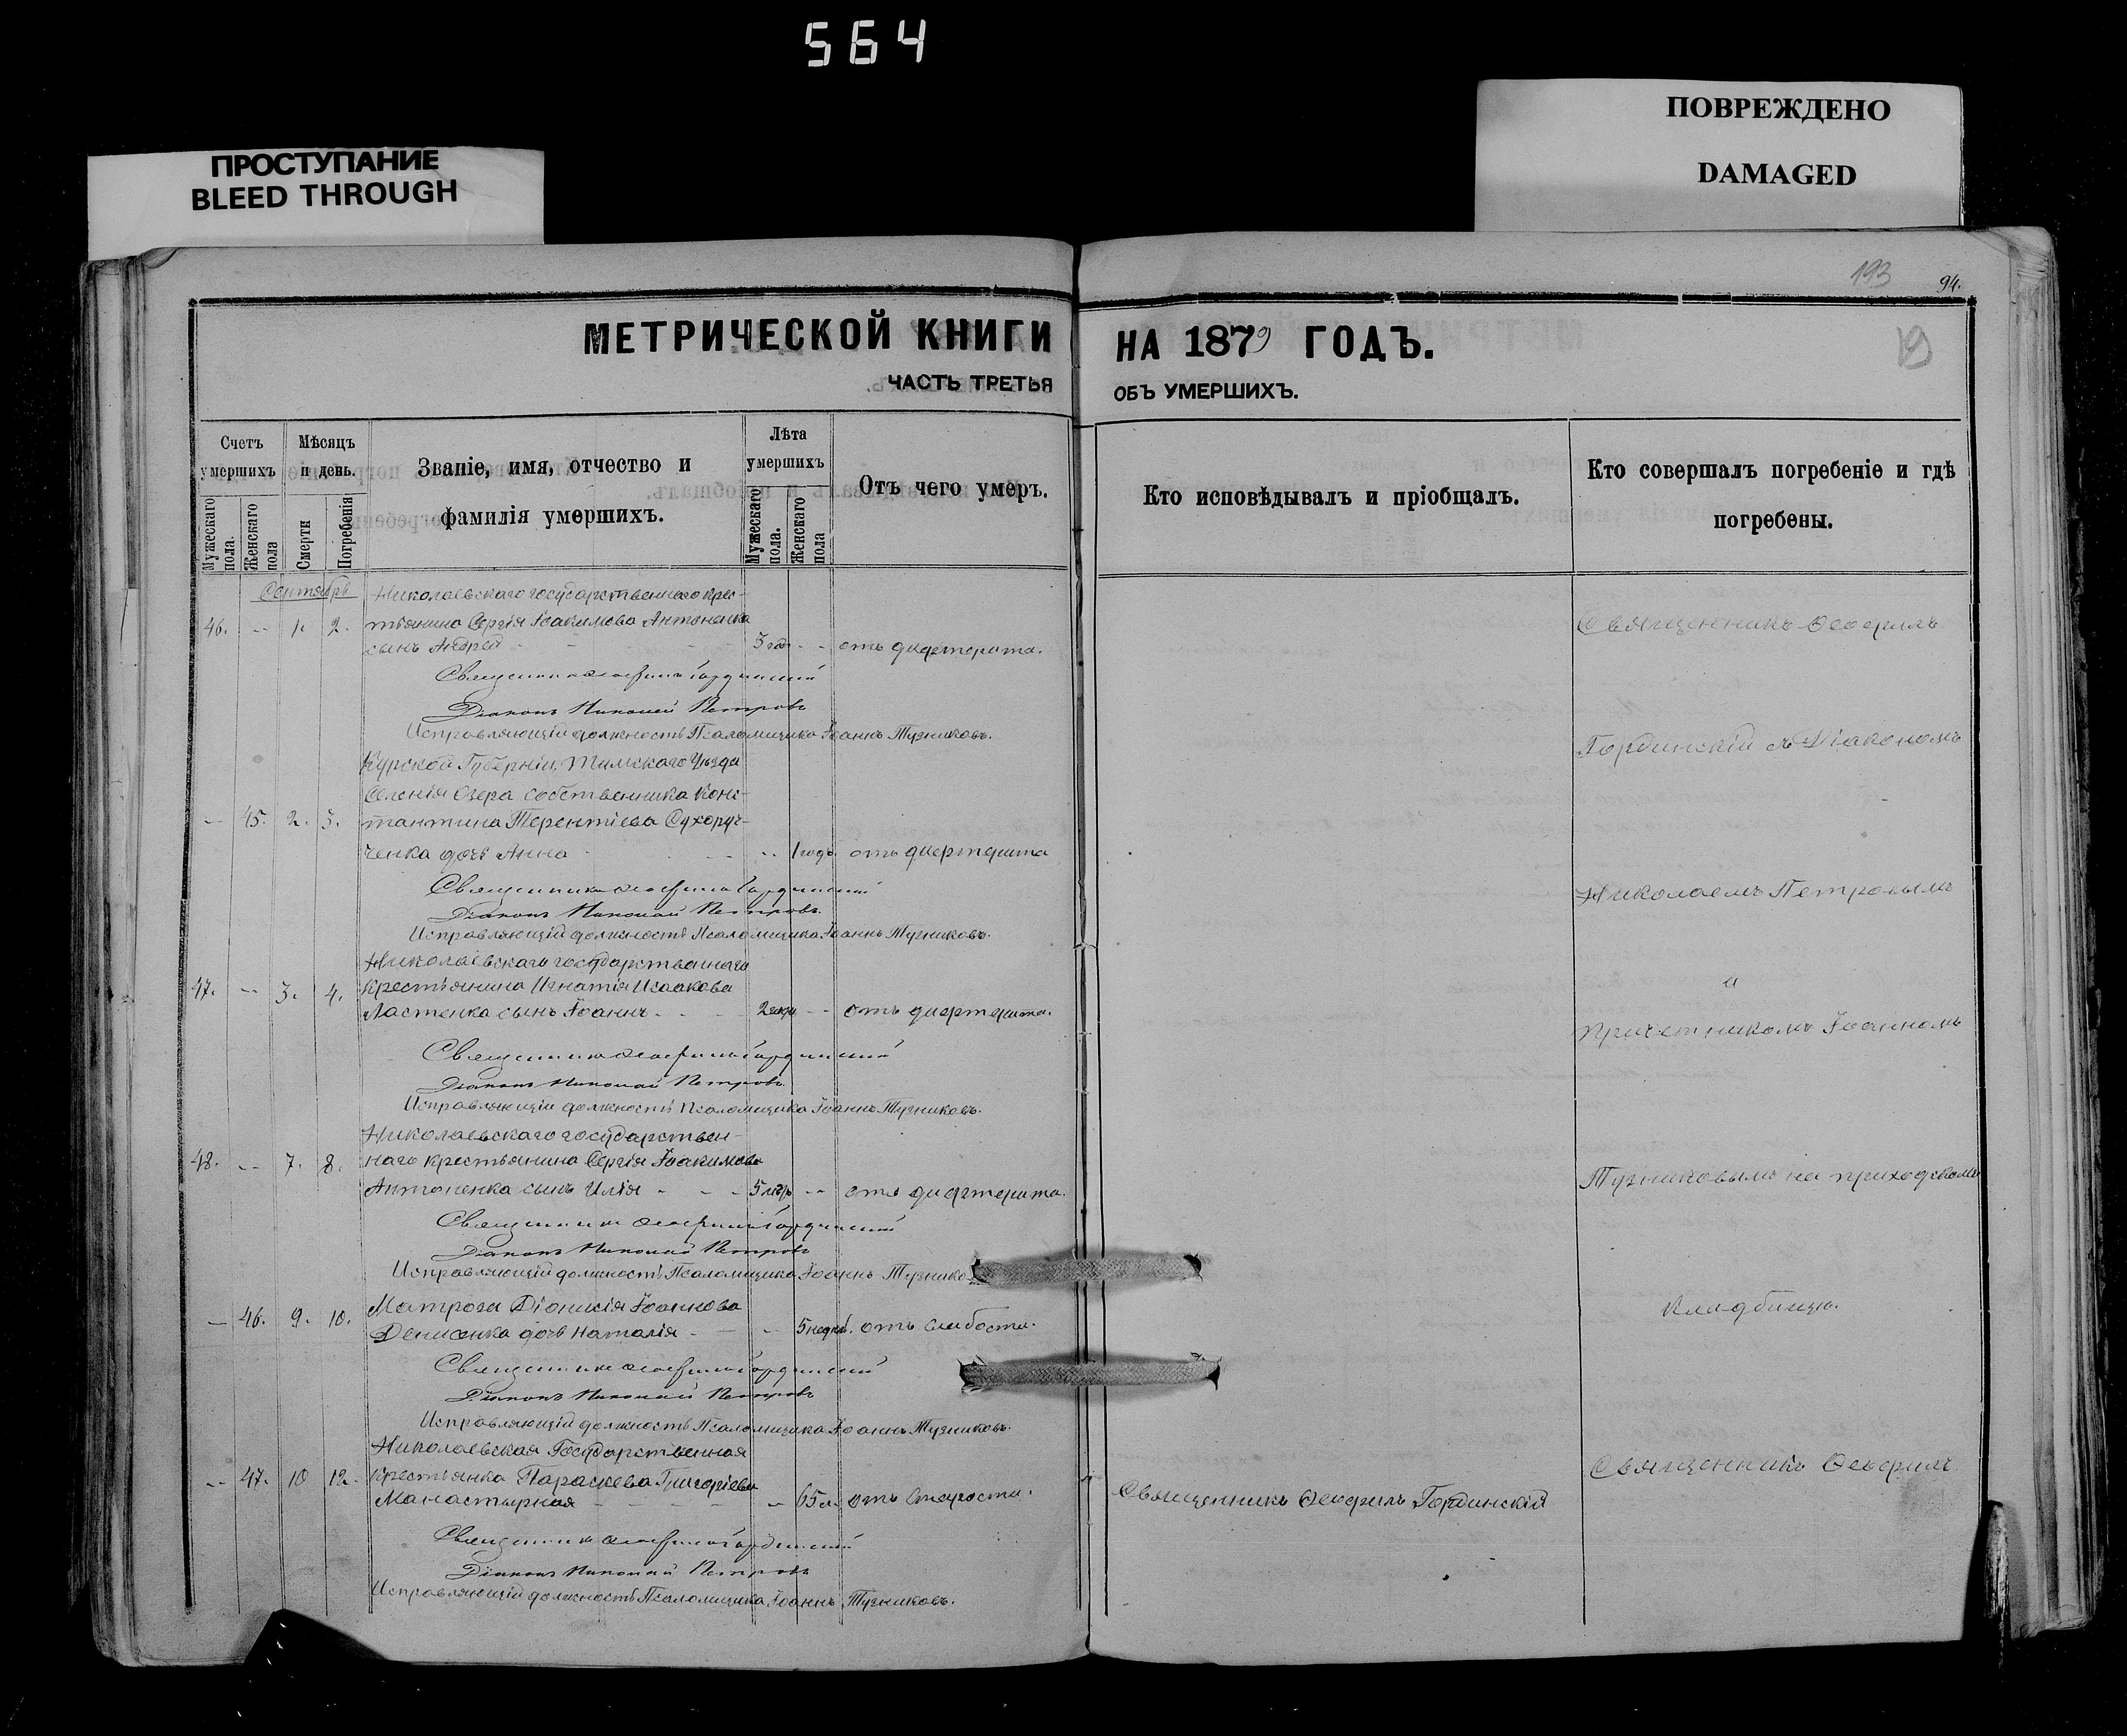 564
ПРОСТУПАНИЕ
BLEED THROUGH
ПОВРЕЖДЕНО
DAMAGED
193
94.
19
МЕТРИЧЕСКОЙ КНИГИ НА 1879 ГОДЪ.
ЧАСТЬ ТРЕТЬЯ ОБЪ УМЕРШИХЪ.
Счетъ умершихъ
Мужескаго пола.
Женскаго пола
Мѣсяцъ и день.
Смерти
Погребенія
Званіе, имя, отчество и
фамилія умершихъ.
Лѣта умершихъ
Мужескаго пола.
Женскаго пола
Отъ чего умеръ.
Кто исповѣдывалъ и пріобщалъ.
Кто совершалъ погребеніе и гдѣ
погребены.
Сентябрь
Николаевскаго государственнаго крес-
46. -- 1. 2. тьянина Сергія Іоакимова Антоненка
сынъ Андрей - - - 3 год. - - отъ дифтерита.
Священникъ Ѳеофилъ Гординскій
Діаконъ Николай Петровъ
Исправляющій должность Псаломщика Іоаннъ Тузниковъ.
Курской Губерніи, Тимскаго Уѣзда
Селенія Озера собственника Конс-
-- 45. 2. 3. тантина Терентіева Сухоруч-
ченка дочь Анна - - - 1 годъ. отъ дифтерита
Священникъ Ѳеофилъ Гординскій
Діаконъ Николай Петровъ.
Исправляющій должность Псаломщика Іоаннъ Тузниковъ.
Николаевскаго государственнаго
47. -- 3. 4. крестьянина Игнатія Исаакова
Ластенка сынъ Іоаннъ - - - 2 года - - отъ дифтерита.
Священникъ Ѳеофилъ Гординскій
Діаконъ Николай Петровъ.
Исправляющій должность Псаломщика Іоаннъ Тузниковъ.
Николаевскаго государствен-
48. -- 7. 8. наго крестьянина Сергія Іоакимова
Антоненка сынъ Илія - - - 5 - - отъ дифтерита.
Священникъ Ѳеофилъ Гординскій
Діаконъ Николай Петровъ
Исправляющій должность Псаломщика Іоаннъ Тузнико
Матроза Діонисія Іоаннова
-- 46. 9. 10. Денисенка дочь Наталія - - - 5 недѣл. отъ слабости.
Священникъ Ѳеофилъ Гординскій
Діаконъ Николай Петровъ
Исправляющій должность Псаломщика Іоаннъ Тузниковъ.
Николаевская Государственная
-- 47. 10 12. крестьянка Параскева Григоріева
Манастырная - - - 65 л. отъ старости.
Священникъ Ѳеофилъ Гординскій
Священникъ Ѳеофилъ Гординскій
Діаконъ Николай Петровъ
Исправляющій должность Псаломщика Іоаннъ Тузниковъ.
Священникъ Ѳеофилъ
Гординскій съ Діакономъ
Николаемъ Петровымъ
и
Причетникомъ Іоанномъ
Тузниковымъ на приходскомъ
кладбищѣ.
Священникъ Ѳеофилъ